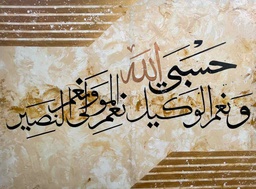 حسبي الله
ونعم الوكيل نعم المولى ونعم النصير